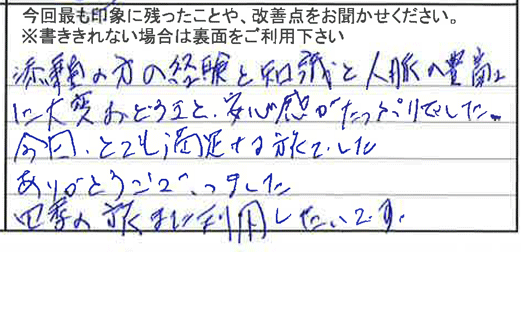 今回最も印象に残ったことや、改善点をお聞かせください。
※書ききれない場合は裏面をご利用下さい
添乗の方の経験と知識と人脈の豊富さ
に大変おどろエと、安心感がたっぷりでした。
今回、とても満足する旅でした
ありがとうございました
四季の旅また利用したいです。